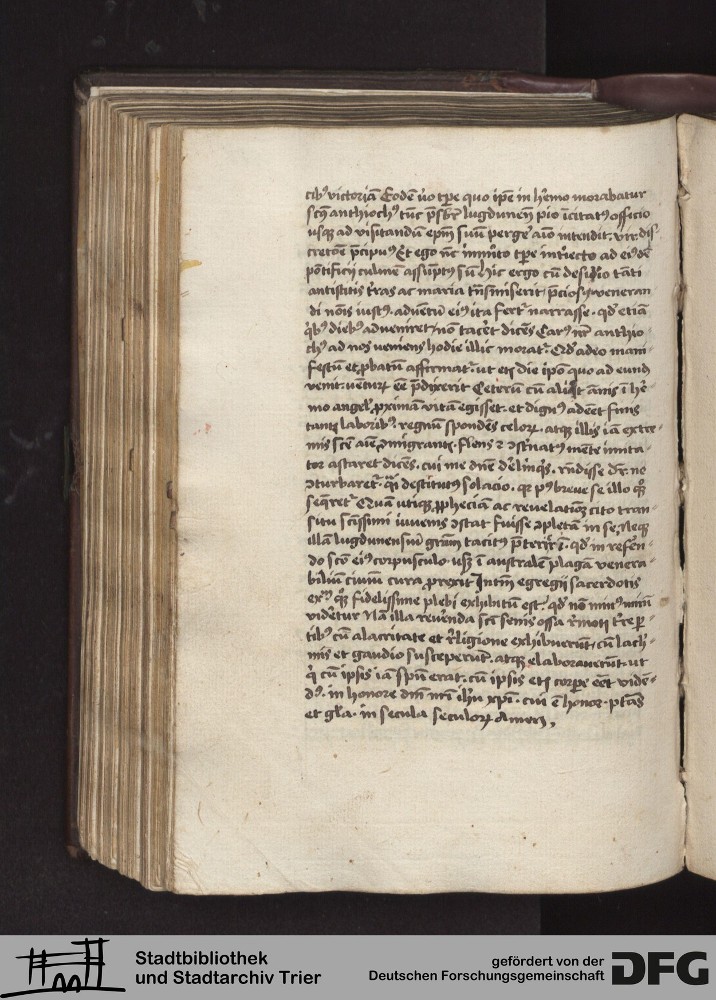 cib9 victoriā Eodē ṽo tp̄e quo ip̄e in h̓emo morabatur
sc̄9 anthioch9 tūc p̄sbr̄ lugdunen̄ pio īcitat9 officio
usq̨ ad visitandū ep̄m suū perge᷑ aīo intendit. vir. dis
cretōe p̄cipu9 Et ego nc̄ īmito tp̄e iniecto ad ei9dē
pōtificii culmē assūpt9 sū Hic ergo cū desid̓io tāti
antistitis t̓ras ac maria tn̄smiserit p̄cios9 veneran
di nōīs iust9. adventū ei9 ita fert᷑ narrasse. qd̓ etiā
q̓b9 dieb9 adveniret nō tac̓et dicēs Car9 nr̄ anthio
ch9 ad nos veniens hodie illic morat᷑. Qd̓ adeo mani
festū et ꝓbatū affirmat᷑. ut etī die ip̄o quo ad eund
venit. ventur̄ ēe p̄dixerit Ceterū cū aliq̓t ānis ī h̓e
mo angel᷑. ꝓximā vitā egisset. et dign9 adeēt finis
tantī laborib9. regnū spondēs celoꝝ. atq̨ illis iā extre
mis sc̄e aīe ꝯmigrantī. flens ⁊ ꝯst̓nat9 mēte imita
tor astaret dicēs. cui me dn̄e de᷑linq̓s. rn̄disse dr̄. ne
ꝯturbaret᷑. q̓si destitut9 solacio. qr p9 breve se illo q̊ꝫ
seq̄ret᷑ Quā utiq̨ ꝓpheciā ac revelatiōꝫ cito tran
situ sc̄issimi iuvenis ꝯstat fuisse ꝯpletā in se. Neq̨
illā lugdunensiū grām tacit9 p̄terier̄ī. qd̓ in refe᷑n
do sc̄o ei9 corpusculo. usꝫ ī australē plagā venera
bilium civiū cura ꝓrexit Int̓im egregii sacerdotis
ex9 q̊ꝫ fidelissime plebi exhibitū est. qd̓ nō min9 mirū
videtur Nā illa reve᷑nda sc̄i senis ossa r̓moti t̓re ꝑ
tib9 cū alacritate et r̓ligione exhibuerūt. cū lach̓
mis et gaudio susceperūt. atq̨ elaboraverūt. ut
q̓ cū ipsis iā spū erat. cū ipsis etī corpe᷑ eēt vide
d9. in honore dn̄i nr̄i ih̓u xp̄i. cui ē honor. ptās
et gl̓a. in secula seculoꝝ Amen,
Stadtbibliothek
und Stadtarchiv Trier
gefördert von der
Deutschen Forschungsgemeinschaft
DFG